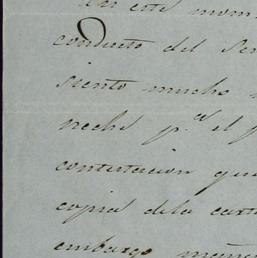 este mom
conducto del Ser
siento mucho
neche p.a el p
contestacion que
copia dela carta
embargo maña